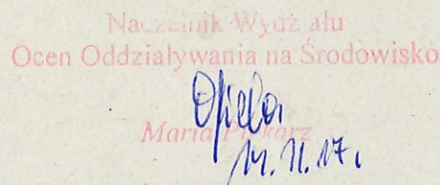 Naczelnik Wydziału
Ocen Oddziaływania na Środowisko
Maria Piekarz
14.11.17.